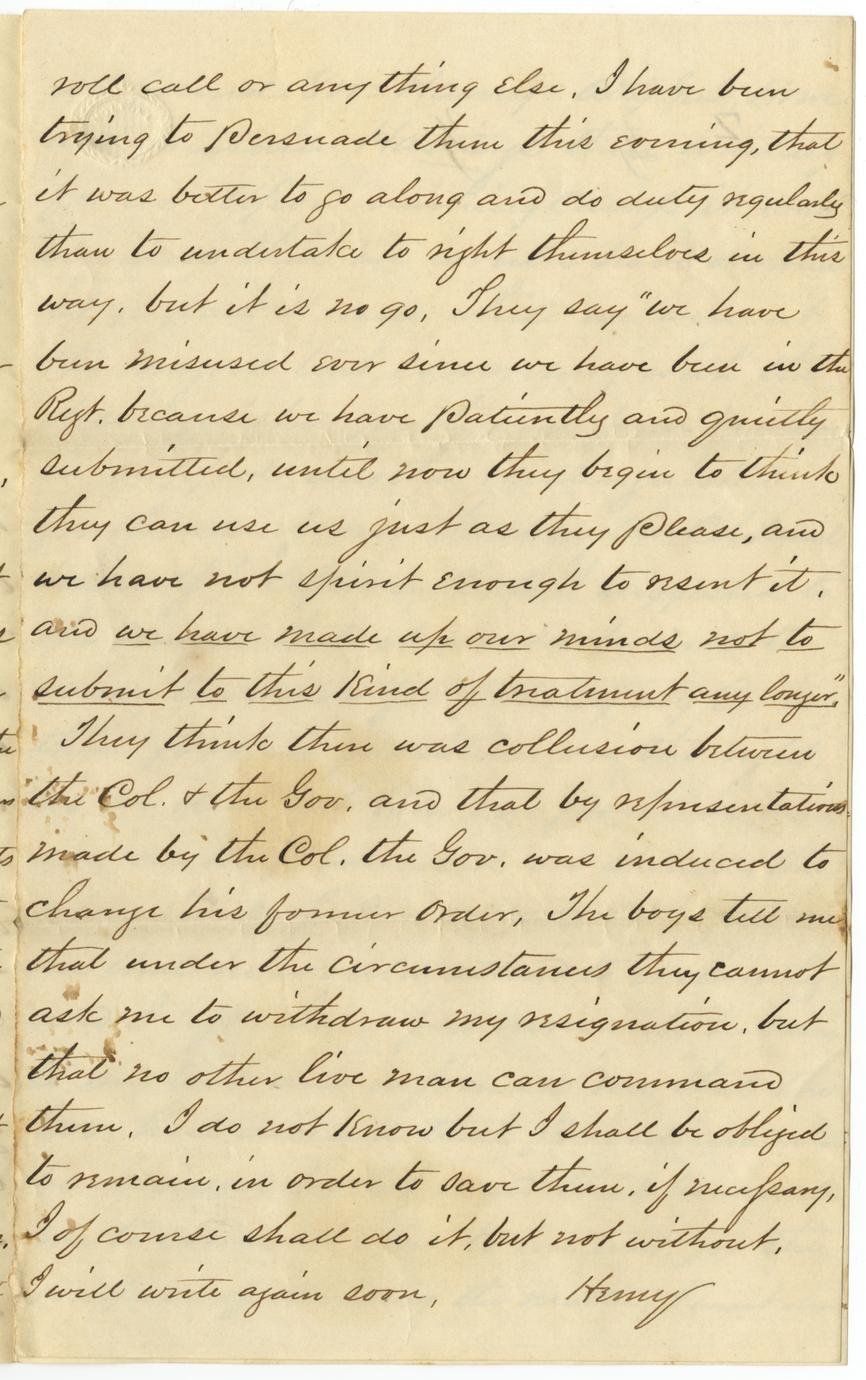 roll call or any thing else. I have been
trying to persuade them this evening, that
it was better to go along and do duty regularly
than to undertake to right themselves in this
way. but it is no go, They say "we have
been misused ever since we have been in the
Regt. because we have patiently and quietly
submitted, until now they begin to think
they can use us just as they please, and
we have not spirit enough to resent it.
and we have made up our minds not to
submit to this kind of treatment any longer".
They think there was collusion between
the Col. & the Gov. and that by representations
made by the Col. the Gov. was induced to
change his former order, The boys tell me
that under the circumstances they cannot
ask me to withdraw my resignation. but
that no other live man can command
them. I do not know but I shall be obliged
to remain. in order to save them. if necessary,
I of course shall do it, but not without.
I will write again soon, Henry